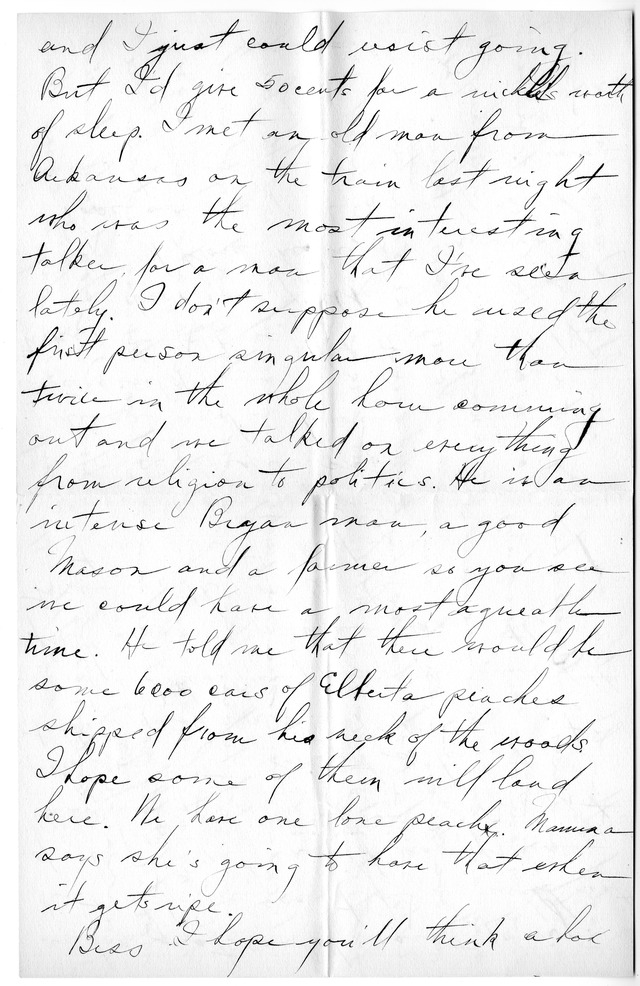 and I just could resist going.
But I'd give 50 cents for a nickles worth
of sleep. I met an old man from
Arkansas on the train last night
who was the most interesting
talker, for a man that I've seen
lately. I don't suppose he used the
first person singular more than
twice in the whole hour comming
out and we talked on everything
from religion to politics. He is an
intense Bryan man, a good
Mason and a farmer so you see
we could have a most agreeable
time. He told me that there would be
some 6000 cars of Elberta peaches
shipped from his neck of the woods.
I hope some of them will land
here. We have one lone peach. Mamma
says she's going to have that when
it gets ripe.
Bess I hope you'll think a